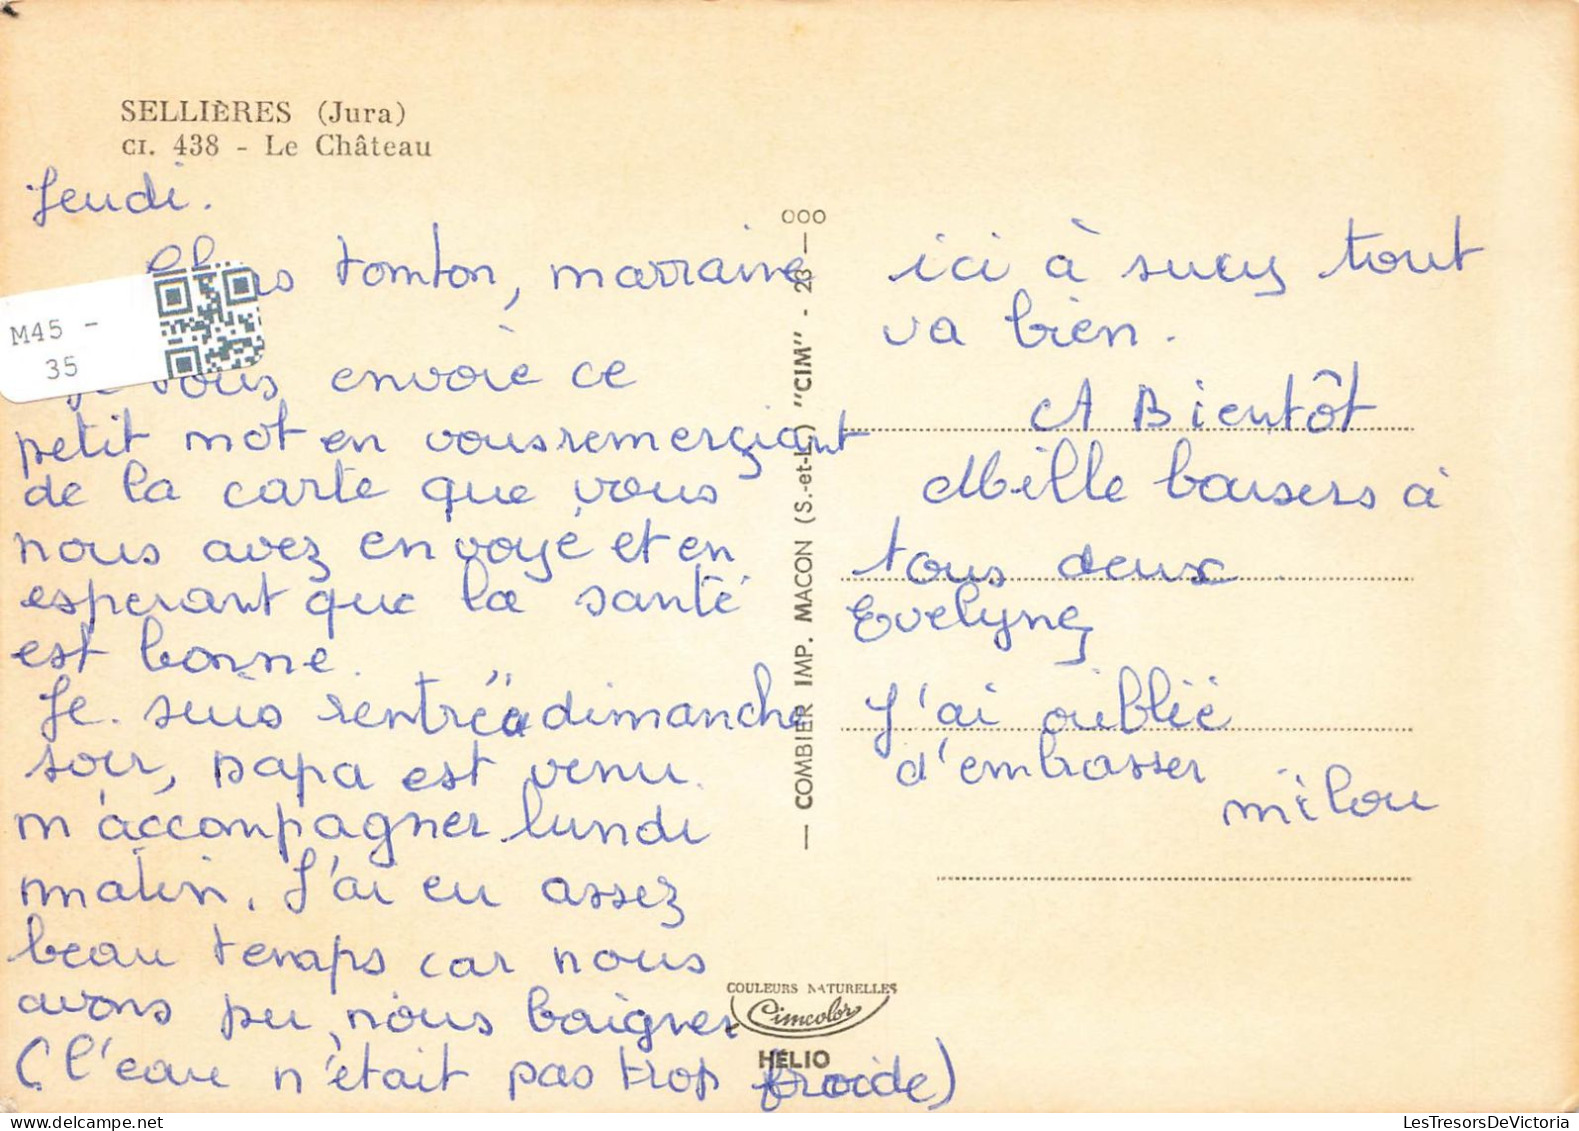 SELLIÈRES (Jura)
CI. 438 - Le Château
Jeudi.
tonton, marraine
M45 -
35
Je vous envoie ce
petit mot en vous remerçiant
de la carte que vous
nous avez envoyé et en
esperant que la santé
est bonne.
Je suis rentrée dimanche
soir, papa est venu
m'accompagner lundi
matin. J'ai eu assez
beau temps car nous
avons pu nous baigner
(l'eau n'était pas trop froide)
ici à sucy tout
va bien.
A Bientôt
Mille baisers à
tous deux
Evelyne
J'ai oublié
d'embrasser
milou
COMBIER IMP. MACON (S.-et-L.) "CIM" - 23 - 000
COULEURS NATURELLES
Cimcolor
HÉLIO
LesTresorsDeVictoria